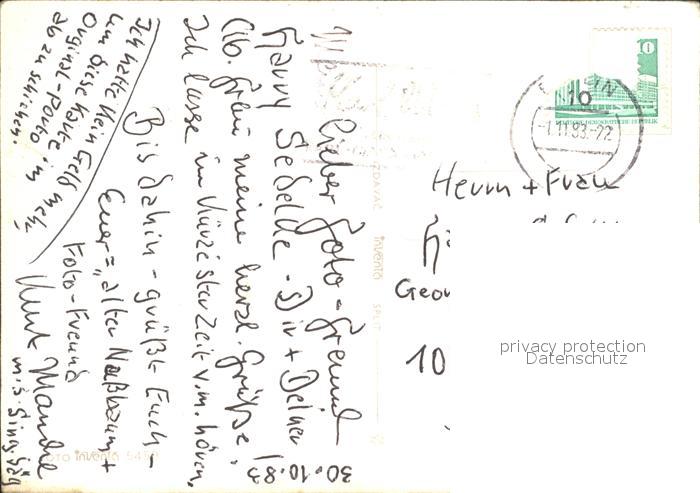 30.10.83
Lieber Foto-Freund
Harry Dir + Deiner
lb. Frau meine herzl. Grüße.
Ich lasse in kürzester Zeit v. m. hören.
Bis dahin - grüßt Euch -
Euer = "alter Naßbaum +
Foto-Freund
Kurt
Ich hatte kein Geld mehr,
um diese Karte im
Original-Porto
abzuschicken.
FOTO inventa
IZDAVAČ inventa SPLIT
10
DEUTSCHE DEMOKRATISCHE REPUBLIK
BERLIN
10
-1.11.83-22
Herrn + Frau
H
Geor
10
privacy protection
Datenschutz